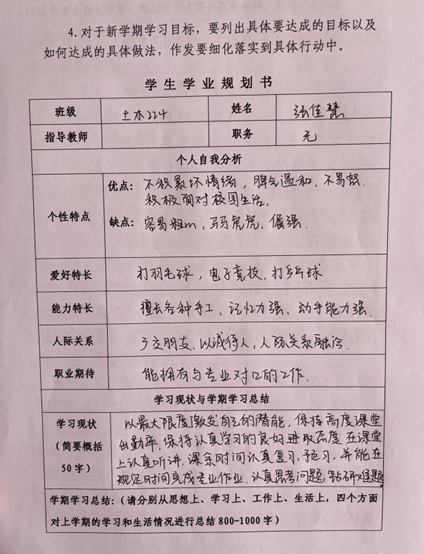 4.对于新学期学习目标，要列出具体要达成的目标以及
如何达成的具体做法，作发要细化落实到具体行动中。
学生学业规划书
班级 土木224 姓名 张佳慧
指导教师 职务 无
个人自我分析
个性特点
优点：不积累坏情绪，脾气温和，不易怒，
积极面对校园生活，
缺点：容易粗心、弱虎虎、倔强．
爱好特长 打羽毛球，电子竞技，打乒乓球
能力特长 擅长各种手工、记忆力强、动手能力强．
人际关系 广交朋友，以诚待人，人际关系融洽．
职业期待 能拥有与专业对口的工作．
学习现状与学期学习总结
学习现状
（简要概括
50字）
以最大限度激发自己的潜能，保持高度课堂
出勤率，保持认真学习的良好进取态度，在课堂
上认真听讲．课余时间认真复习，预习，并能在
规定时间完成专业作业．认真思考问题，钻研难题
学期学习总结：（请分别从思想上、学习上、工作上、生活上，四个方面
对上学期的学习和生活情况进行总结800-1000字）